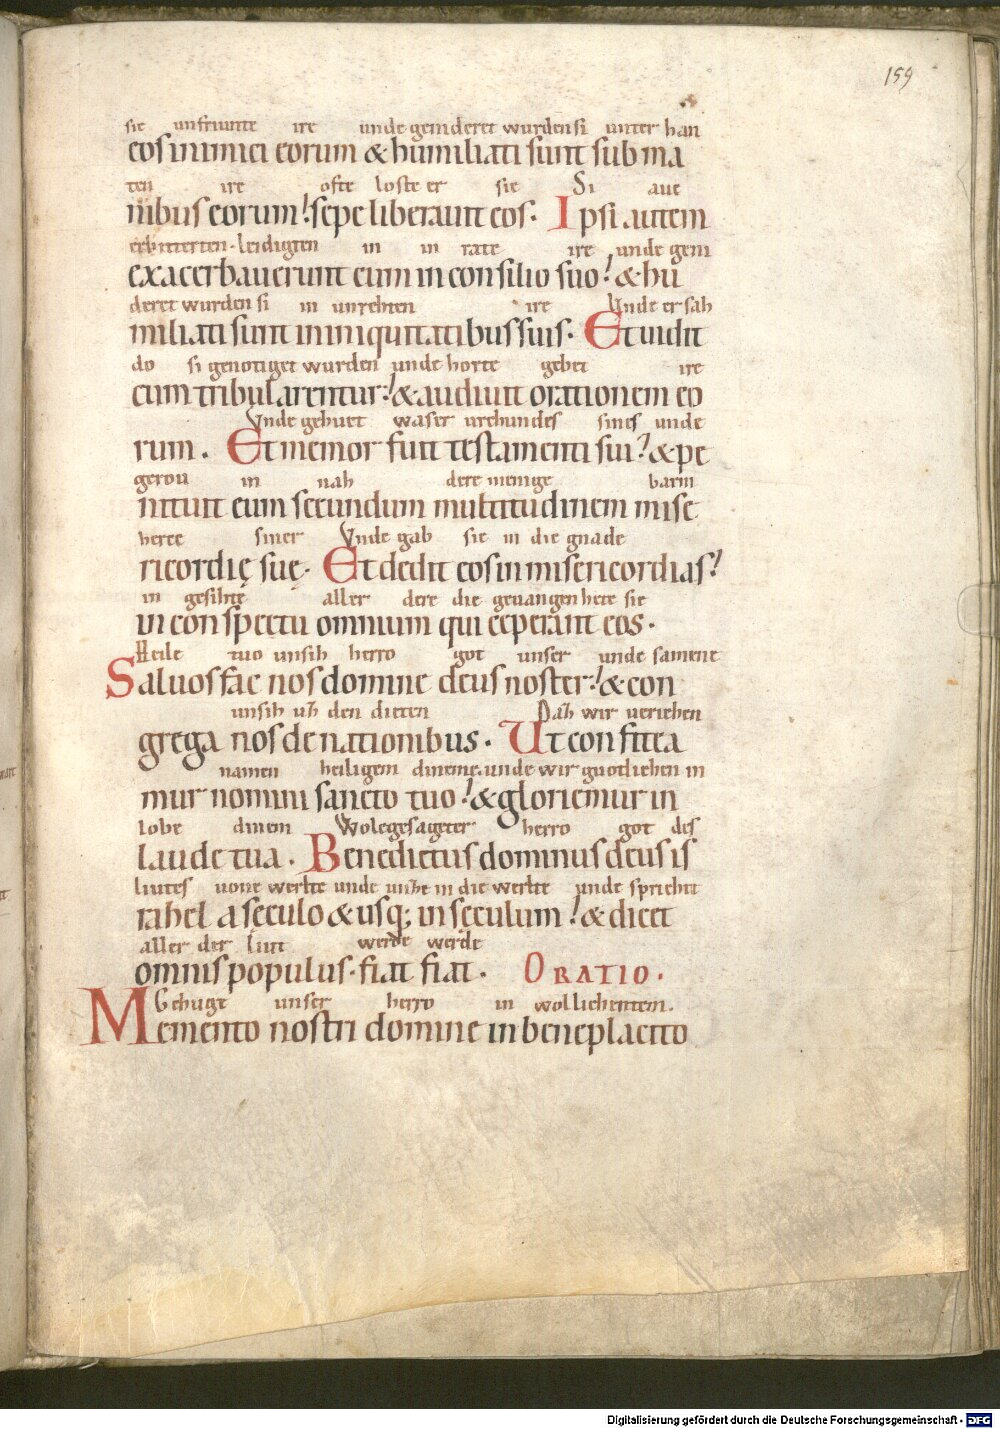 159
sie unfriunte ire unde genideret wurden si unter han
eos inimici eorum & humiliati sunt sub ma
ten ire ofte loste er sie Si aue
nibus eorum! sepe liberauit eos. Ipsi autem
erbitterten. leidigten in in rate ire unde geni
exacerbauerunt eum in consilio suo! & hu
deret wurden si in unrehten ire Vnde er sah
miliati sunt in iniquitatibus suis. Et uidit
do si genotiget wurden unde horte gebet ire
cum tribularentur! & audiuit orationem eo
Vnde gehuet waser urchundes sines unde
rum. Et memor fuit testamenti sui? & pe
gerou in nah dere menige barm
nituit eum secundum multitudinem mise
herce siner Vnde gab sie in die gnade
ricordię suę. Et dedit eos in misericordias?
in gesihte aller dere die geuangen hete sie
in conspectu omnium qui ceperant eos.
Heile tuo unsih herro got unser unde samene
Saluos fac nos domine deus noster! & con
unsih uz den dieten Daz wir ueriehen
grega nos de nationibus. Ut confitea
namen heiligem dineme. unde wir guotlichen in
mur nomini sancto tuo! & gloriemur in
lobe dinem Wolegesageter herro got des
laude tua. Benedictus dominus deus is
liutes uone werlte unde unze in die werlte unde sprichit
rahel a sęculo & usq; in sęculum! & dicet
aller der liut werde werde
omnis populus. fiat fiat. ORATIO.
Gehuge unser herro in wollichentem.
Memento nostri domine in beneplacito
Digitalisierung gefördert durch die Deutsche Forschungsgemeinschaft - DFG